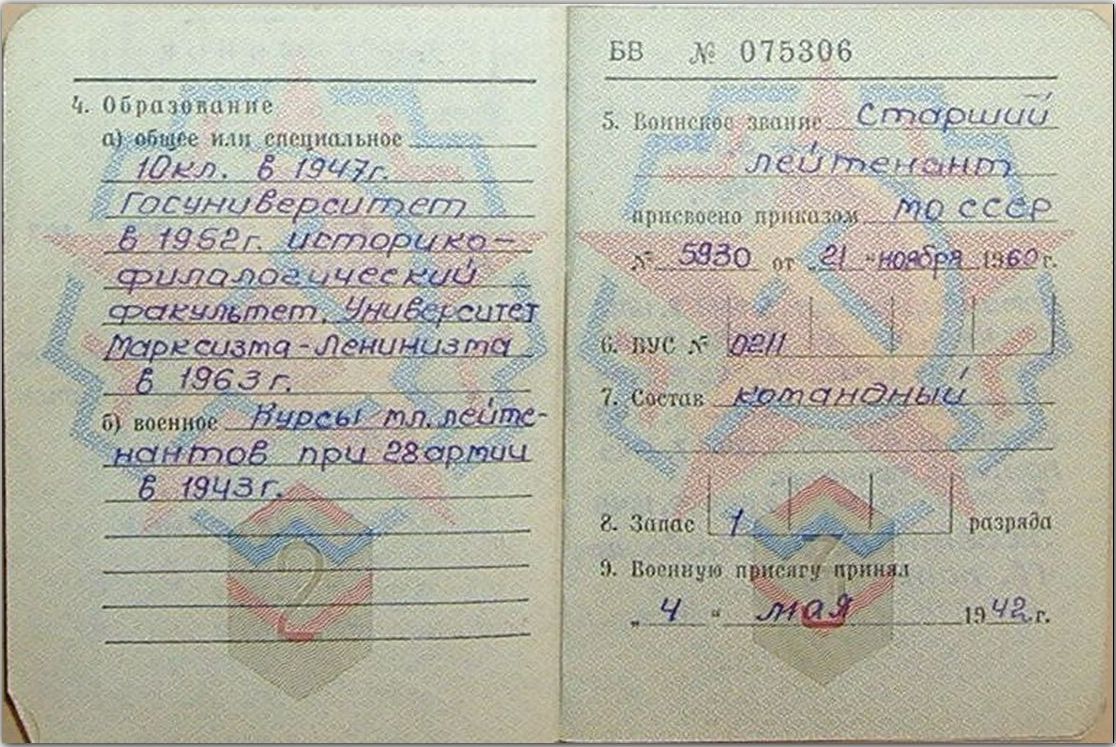 4. Образование
а) общее или специальное
10кл. в 1947г.
Госуниверситет
в 1952г. историко-
филалогический
факультет. Университет
Марксизма-Ленинизма
в 1963г.
б) военное Курсы мл. лейте-
нантов при 28 армии
в 1943г.
2
БВ № 075306
5. Воинское звание Старший
лейтенант
присвоено приказом МО СССР
№ 5930 от „21“ ноября 1960г.
6. ВУС № 0211
7. Состав командный
8. Запас 1 разряда
9. Военную присягу принял
„4“ мая 1942г.